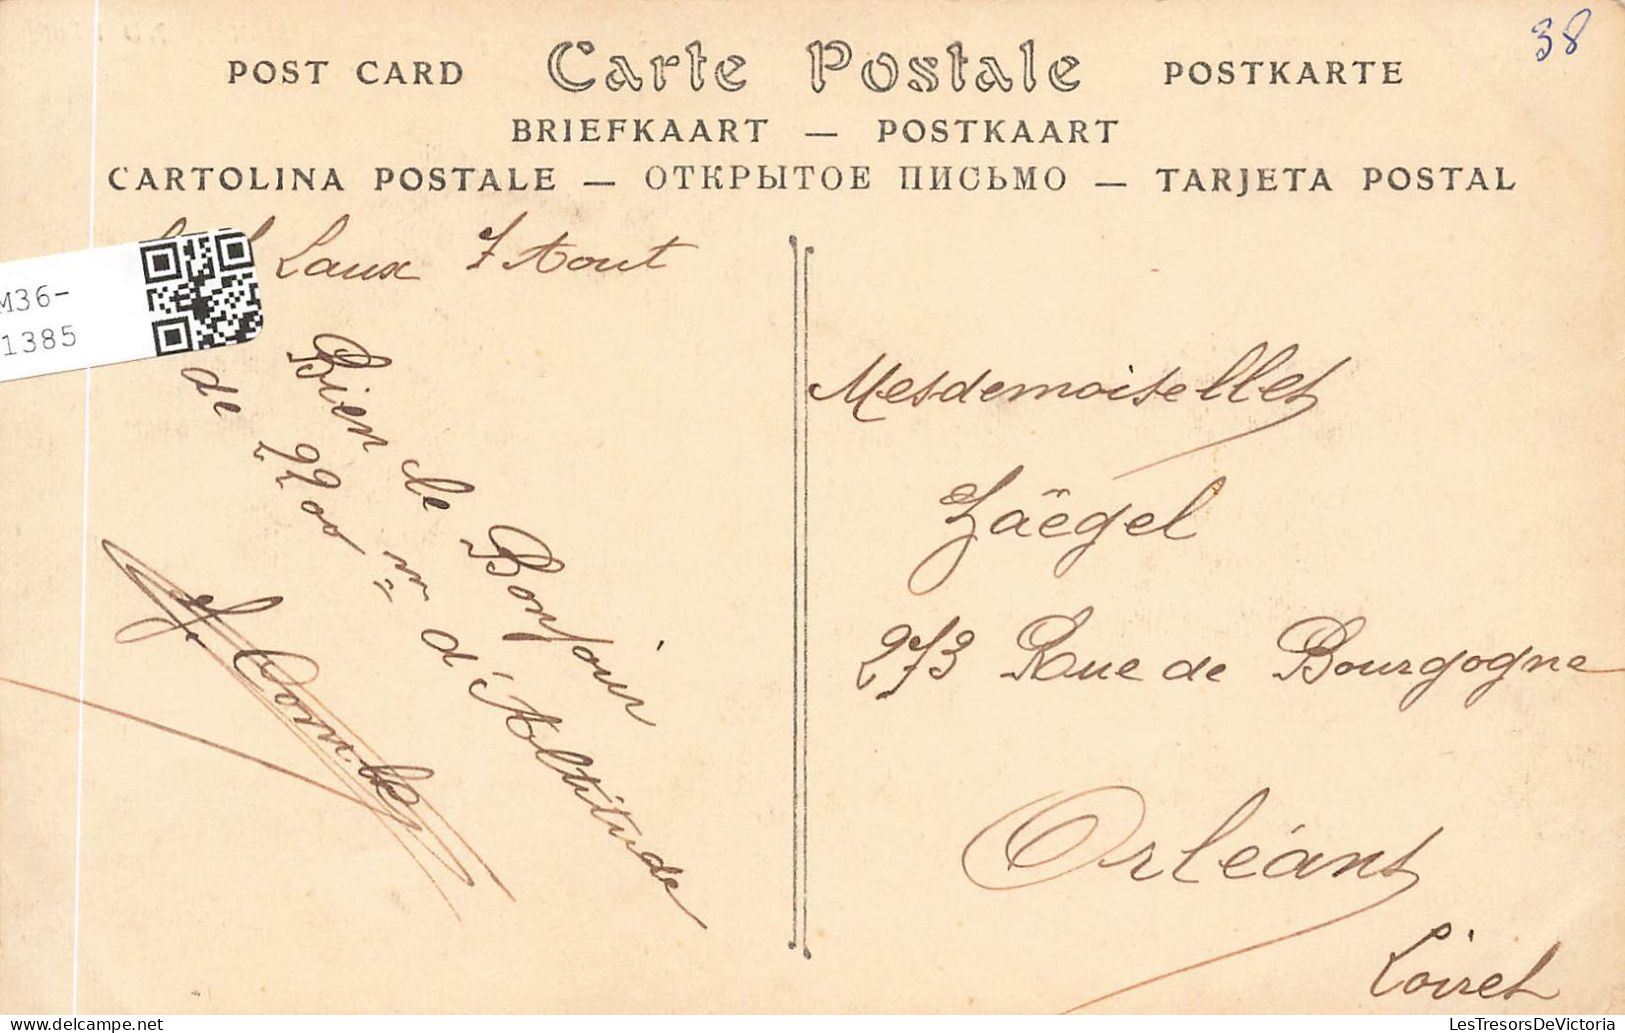 38
POST CARD Carte Postale POSTKARTE
BRIEFKAART — POSTKAART
CARTOLINA POSTALE — ОТКРЫТОЕ ПИСЬМО — TARJETA POSTAL
Laux 7 Aout
M36-
1385
Bien le Bonjour
de 2200 m d'Altitude
Mesdemoiselles
Zäegel
273 Rue de Bourgogne
Orléans
Loiret
LesTresorsDeVictoria